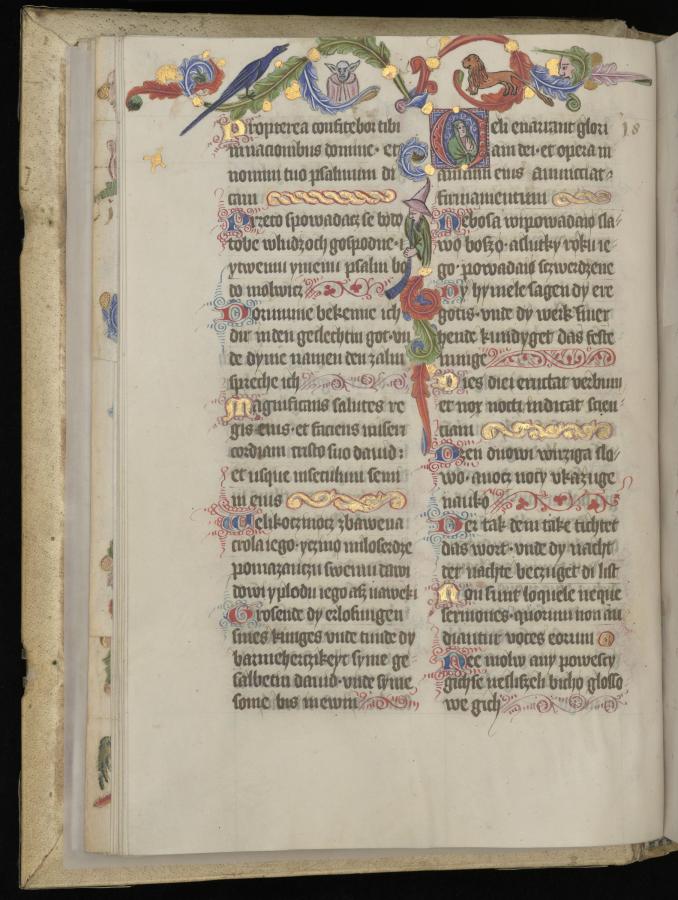 Propterea confitebor tibi
in nacionibus domine · et
nomini tuo psalmum di
cam
Przeto spowiadacz se bødø
tobe w ludzoch gospodne · i
ytwemu ymeniu psalm bø
dø molwicz
Dorumme bekenne ich
dir in den geslechtin got · vn
de dyme namen den zalm
spreche ich
Magnificans salutes re
gis eius · et faciens miseri
cordiam cristo suo dauid :
et usque in seculum semi
ni eius
Welikoczinøcz zbawena
crola iego · yczinø miloserdze
pomazanczu swemu dawi
dowi y plodu iego asz na weki
Grosende dy erlosungen
sines kunges vnde tunde dy
barmehertzikeyt syme ge
salbetin dauid · vnde syme
some bis in ewin
Celi enarrant glori
am dei · et opera m
anuum eius annunctiat
firmamentum
Nebosa wipowiadaiø sla
wø boszø · a skutky røku ie
go · powiada is sczwerdzene
Dy hymele sagen dy ere
gotis · vnde dy werk siner
hende kundyget das feste
ninge
Dies diei eructat verbum
et nox nocti indicat scien
ciam
Dzen dnowi wirziga slo
wo · a noc nocy vkazuge
naukø
Der tak dem take tichtet
das wort · vnde dy nacht
der nachte beczuget di list
Non sunt loquele neque
sermones · quorum non au
diantur voces eorum
Nee molw any powescy
gichsze nesliszeli bicho glosso
we gich
18